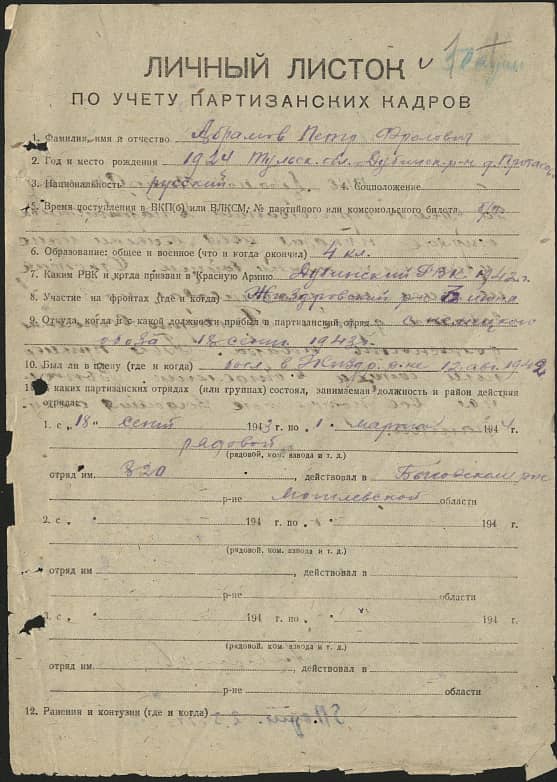 ЛИЧНЫЙ ЛИСТОК
ПО УЧЕТУ ПАРТИЗАНСКИХ КАДРОВ
1. Фамилия, имя и отчество Абрамов Петр Фролович
2. Год и место рождения 1924 Тульск. обл. Дубенск. р-н д. Протас
3. Национальность русский 4. Соцположение
5. Время поступления в ВКП(б) или ВЛКСМ, № партийного или комсомольского билета б/п
6. Образование: общее и военное (что и когда окончил) 4 кл.
7. Каким РВК и когда призван в Красную Армию Дубенский РВК 1942 г.
8. Участие на фронтах (где и когда) Жиздровский р-н
9. Откуда, когда и с какой должности прибыл в партизанский отряд с немецкого
обоза 18 сент. 1943 г.
10. Был ли в плену (где и когда) был в Жиздр. р-не 12 авг. 1942
11. В каких партизанских отрядах (или группах) состоял, занимаемая должность и район действия
отряда:
1. с „18“ сент 1943 г. по „1“ марта 1944 г.
рядовой
(рядовой, ком. взвода и т. д.)
отряд им. 820, действовал в Быховском р-не
р-не Могилевской области
2. с „ “ 194 г. по „ “ 194 г.
(рядовой, ком. взвода и т. д.)
отряд им., действовал в
р-не области
3. с „ “ 194 г. по „ “ 194 г.
(рядовой, ком. взвода и т. д.)
отряд им., действовал в
р-не области
12. Ранения и контузии (где и когда)